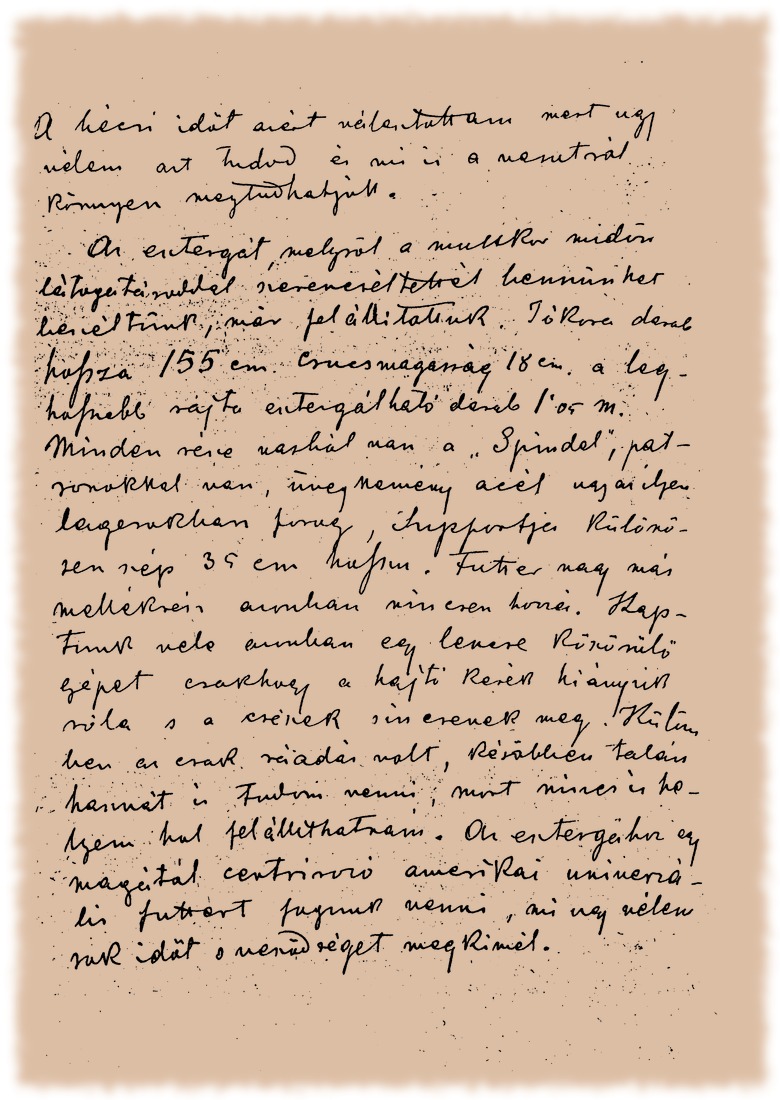 A bécsi időt azért választottam mert ugy
vélem azt tudod és mi is a vasutról
könnyen megtudhatjuk.
Az esztergát, melyről a multkor midőn
látogatásoddal szerencséltettél bennünket
beszéltünk, már felállitottuk. Tőkoze darab
hossza 155 cm. Csucsmagasság 18 cm. a leg-
hosszebb rajta esztergálható darab 1·05 m.
Minden része vasból van a „Spindel", pat-
ronokkal van, üvegkemény acél ugyanilyen
lagerokban forog, Supportja különö-
sen szép 35 cm hosszu. Futter vagy más
mellékrész azonban nincsen hozzá. Kap-
tunk vele azonban egy lencse köszörülő
gépet csakhogy a hajtó kerék hiányzik
róla s a csészék sincsenek meg. Külön
ben ez csak ráadás volt, későbben talán
hasznát is tudom venni, most nincs is he-
lyem hol felállithatnám. Az esztergához egy
magától centrirozó amerikai univerzá-
lis futtert fogunk venni, mi ugy vélem
sok időt s vesződséget megkimél.